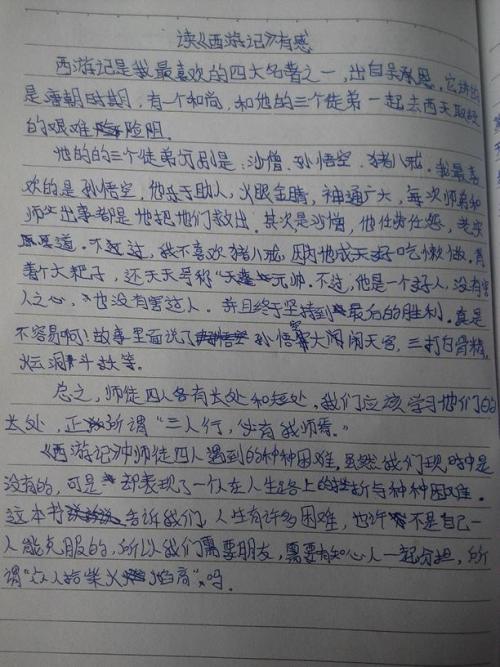 读《西游记》有感
西游记是我最喜欢的四大名著之一，出自吴承恩，它讲的
是唐朝时期，有一个和尚，和他的三个徒弟一起去西天取经
的艰难险阻。
他的的三个徒弟分别是：沙僧、孙悟空、猪八戒。我最喜
欢的是孙悟空，他乐于助人，火眼金睛，神通广大，每次师弟和
师父出事都是他把他们救出。其次是沙僧，他任劳任怨，老实
厚道。不过，我不喜欢猪八戒，因为他成天好吃懒做。
着个大耙子，还天天号称“天蓬元帅。不过，他是一个好人，没有害
人之心，也没有害过人。并且终于坚持到最后的胜利。真是
不容易啊！故事里面说了孙悟空大闹闹天宫，三打白骨精，
火云洞斗妖等。
总之，师徒四人各有长处和短处，我们应该学习他们的
长处，正所谓“三人行，必有我师焉。”
《西游记》中师徒四人遇到的种种困难，虽然我们现时中是
没有的，可是却表现了一个人在人生路上的挫折与种种困难。
这本书告诉我们，人生有许多困难，也许不是自己一
人能克服的，所以我们需要朋友，需要有知心人一起分担，所
谓“众人拾柴火焰高”，吗。